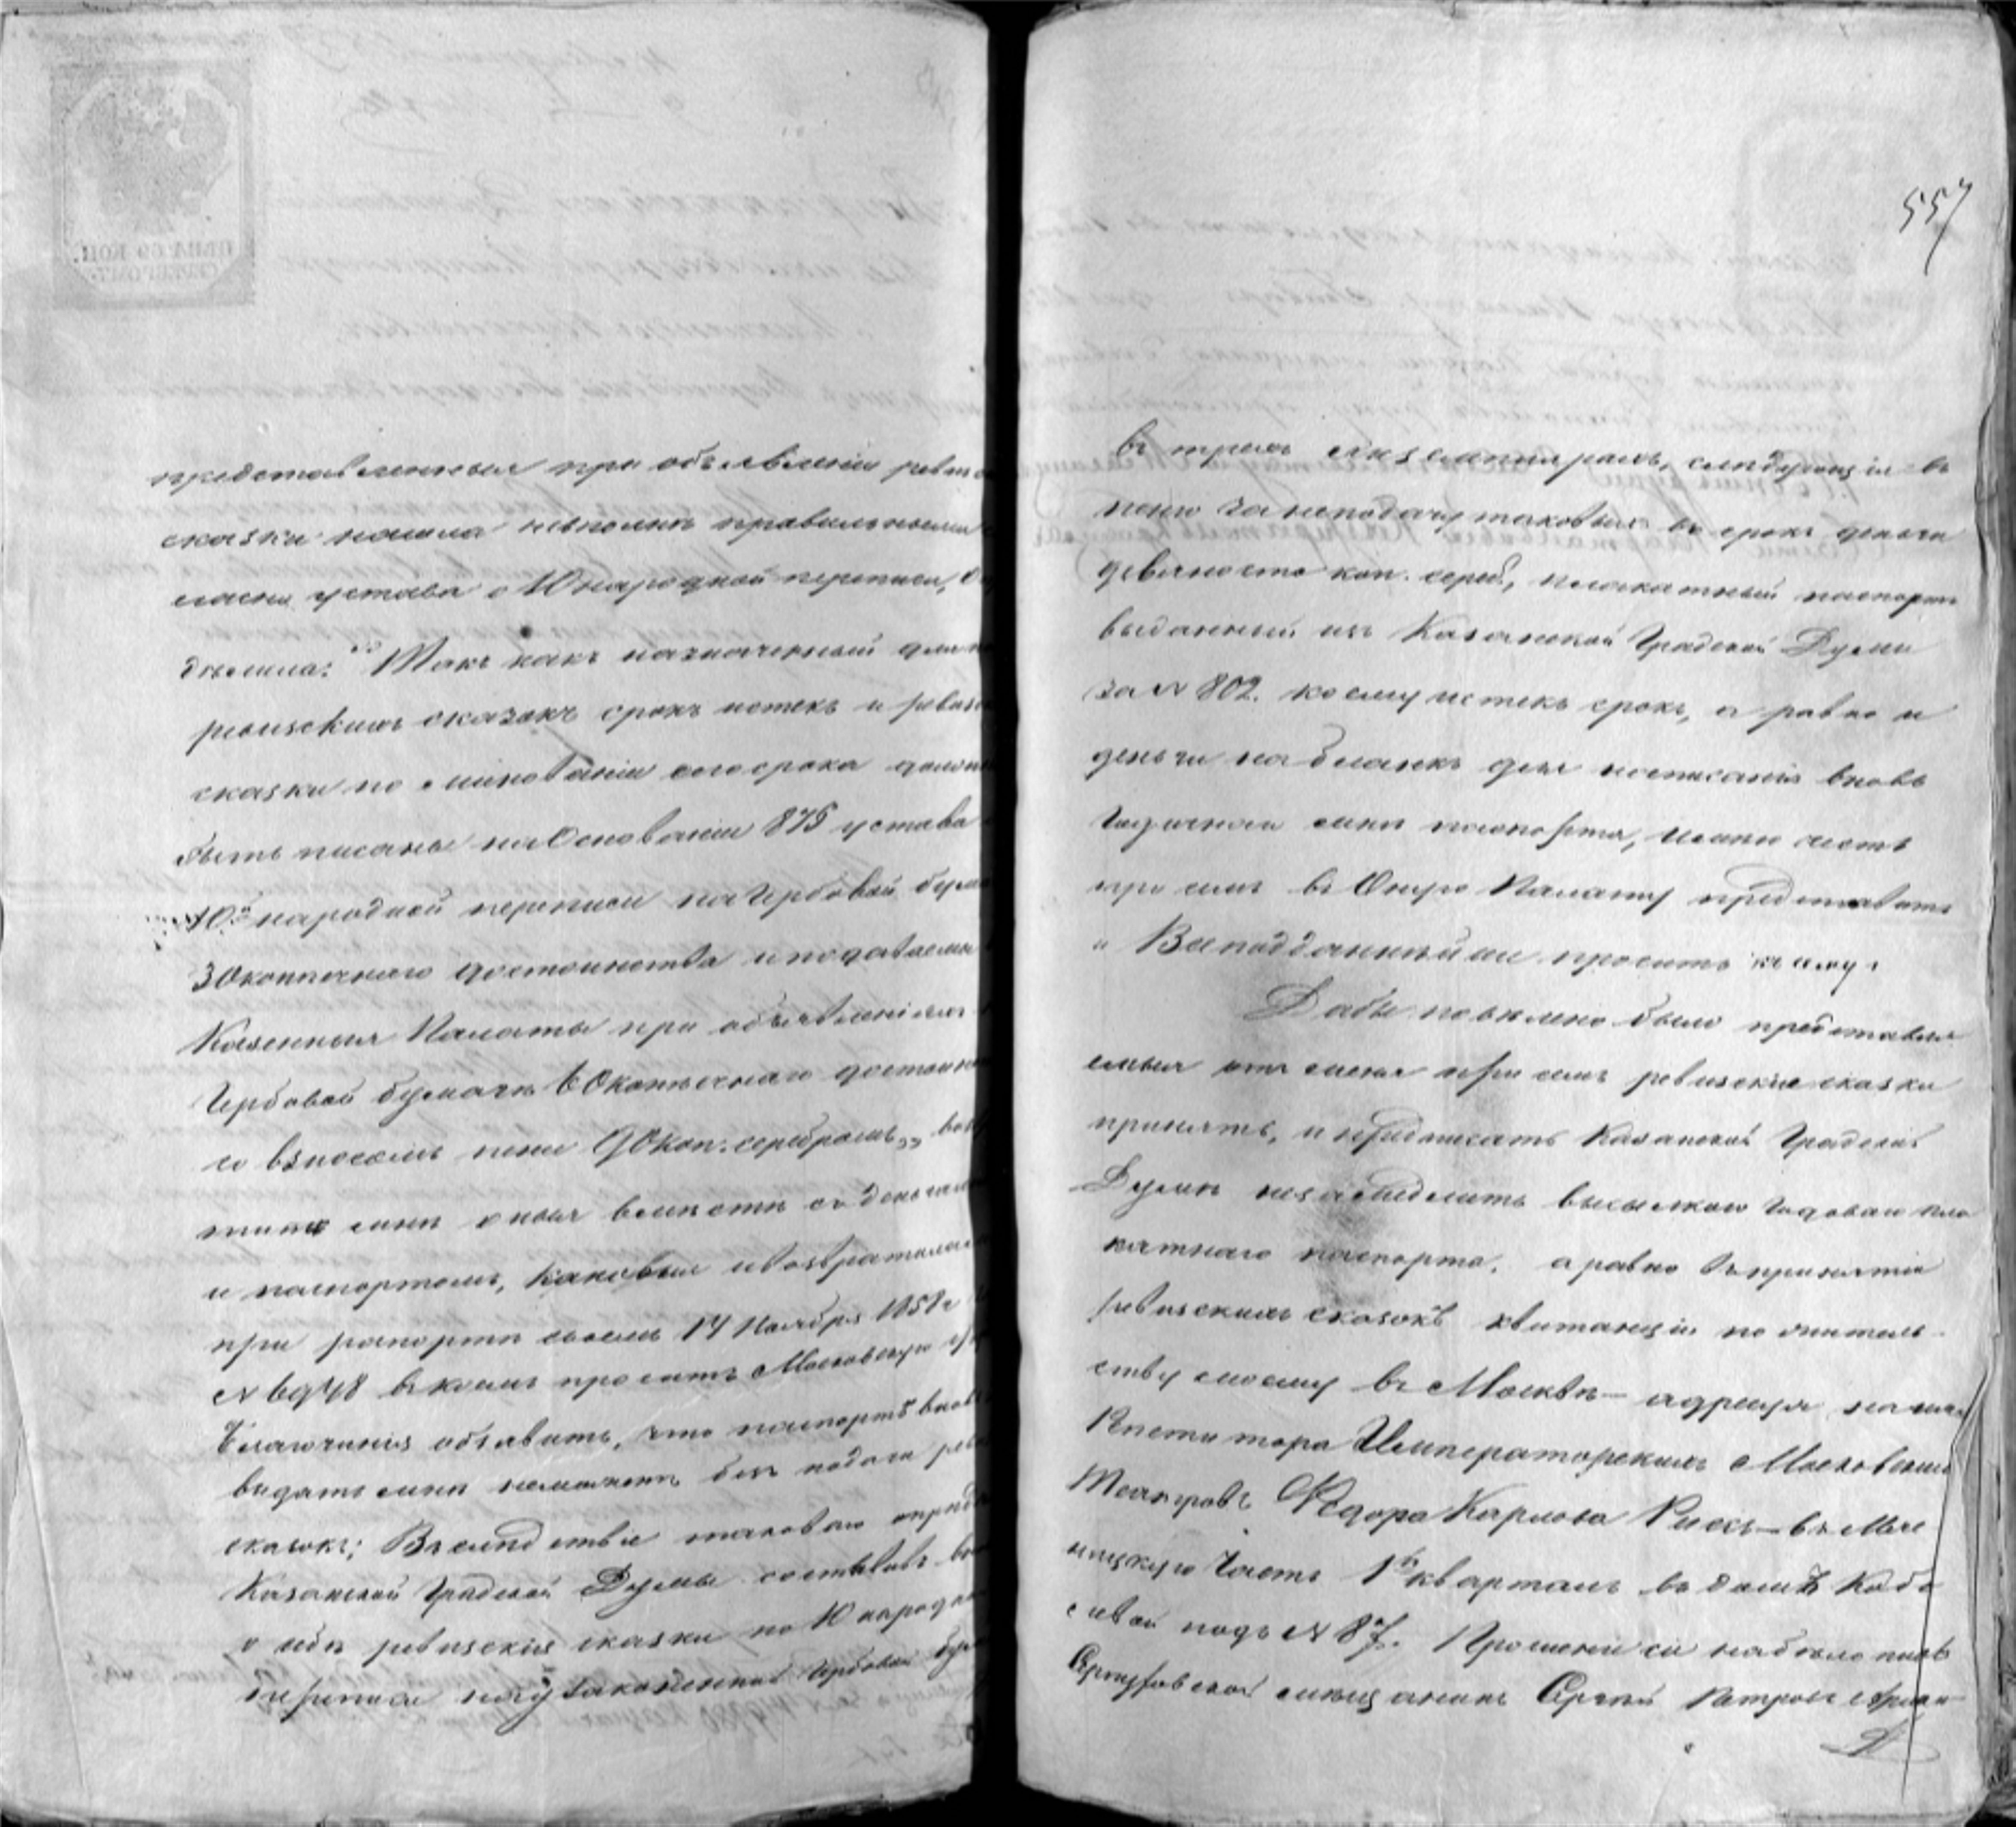 представленныя при объявленіи ревиз
сказки нашла невполнѣ правильными
сласно устава о 10 народной переписи, о
дѣлила: „Такъ какъ назначенный для
ревизскихъ сказокъ срокъ истекъ и ревиз
сказки по минованіи сего срока долж
быть писаны на Основаніи 875 устава
10й народной переписи на Гербовой бума
30 копѣечнаго достоинства и подаваемы
Казенныя Палаты при объявленіяхъ
Гербовой бумаги 60 копѣечнаго достоин
со взносомъ пени 90 коп. серебромъ„ воз
мнѣ оныя вмѣстѣ съ деньгами
и паспортомъ, каковыя и возвратила
при рапортѣ своемъ 14 Ноября 1858
№ 6948 въ коемъ проситъ Московскую
Благочинія объявить, что паспортъ вновь
выдать мнѣ неможетъ безъ подачи рев
сказокъ; Въ слѣдствіе таковаго опредѣ
Казанской Градской Думы составивъ
о себѣ ревизскія сказки по 10 народно
переписи на узаконенной Гербовой бум
557
въ трехъ екземплярахъ, слѣдующія въ
пеню за неподачу таковыхъ въ срокъ деньги
девяносто коп. сереб., плакатный паспортъ
выданный изъ Казанской Градской Думы
за № 802. коему истекъ срокъ, а равно и
деньги на бланкъ для написанія вновь
Годичнаго мнѣ паспорта, имѣю честь
при семъ въ Оную Палату представить
и Всеподданнѣйше просить къ сему:
Дабы повелѣно было представля
емыя отъ меня при семъ ревизскія сказки
принять, и предписать Казанской Градской
Думѣ незамедлить высылкою Годоваго пла
катнаго паспорта, а равно въ принятіи
ревизскихъ сказокъ квитанціи по житель
ству моему въ Москвѣ — адресуя на имя
Репетитора Императорскихъ Московскихъ
Театровъ Ѳедора Карлова Рисъ — въ Мяс
ницкую Часть 1й кварталъ въ домъ
подъ № 87. Прошеніе сіе набѣло писалъ
Серпуховской мѣщанинъ Сергѣй Петровъ